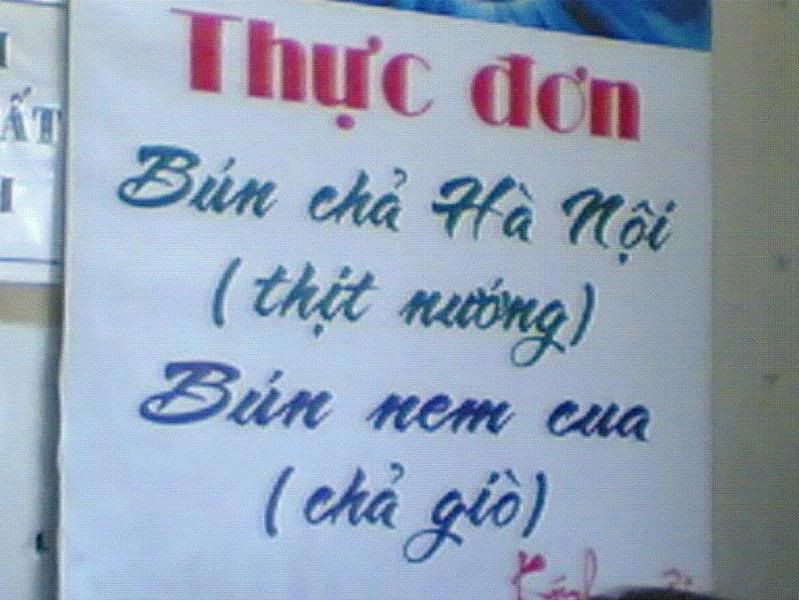 Thực đơn
Bún chả Hà Nội
(thịt nướng)
Bún nem cua
(chả giò)
ẤT